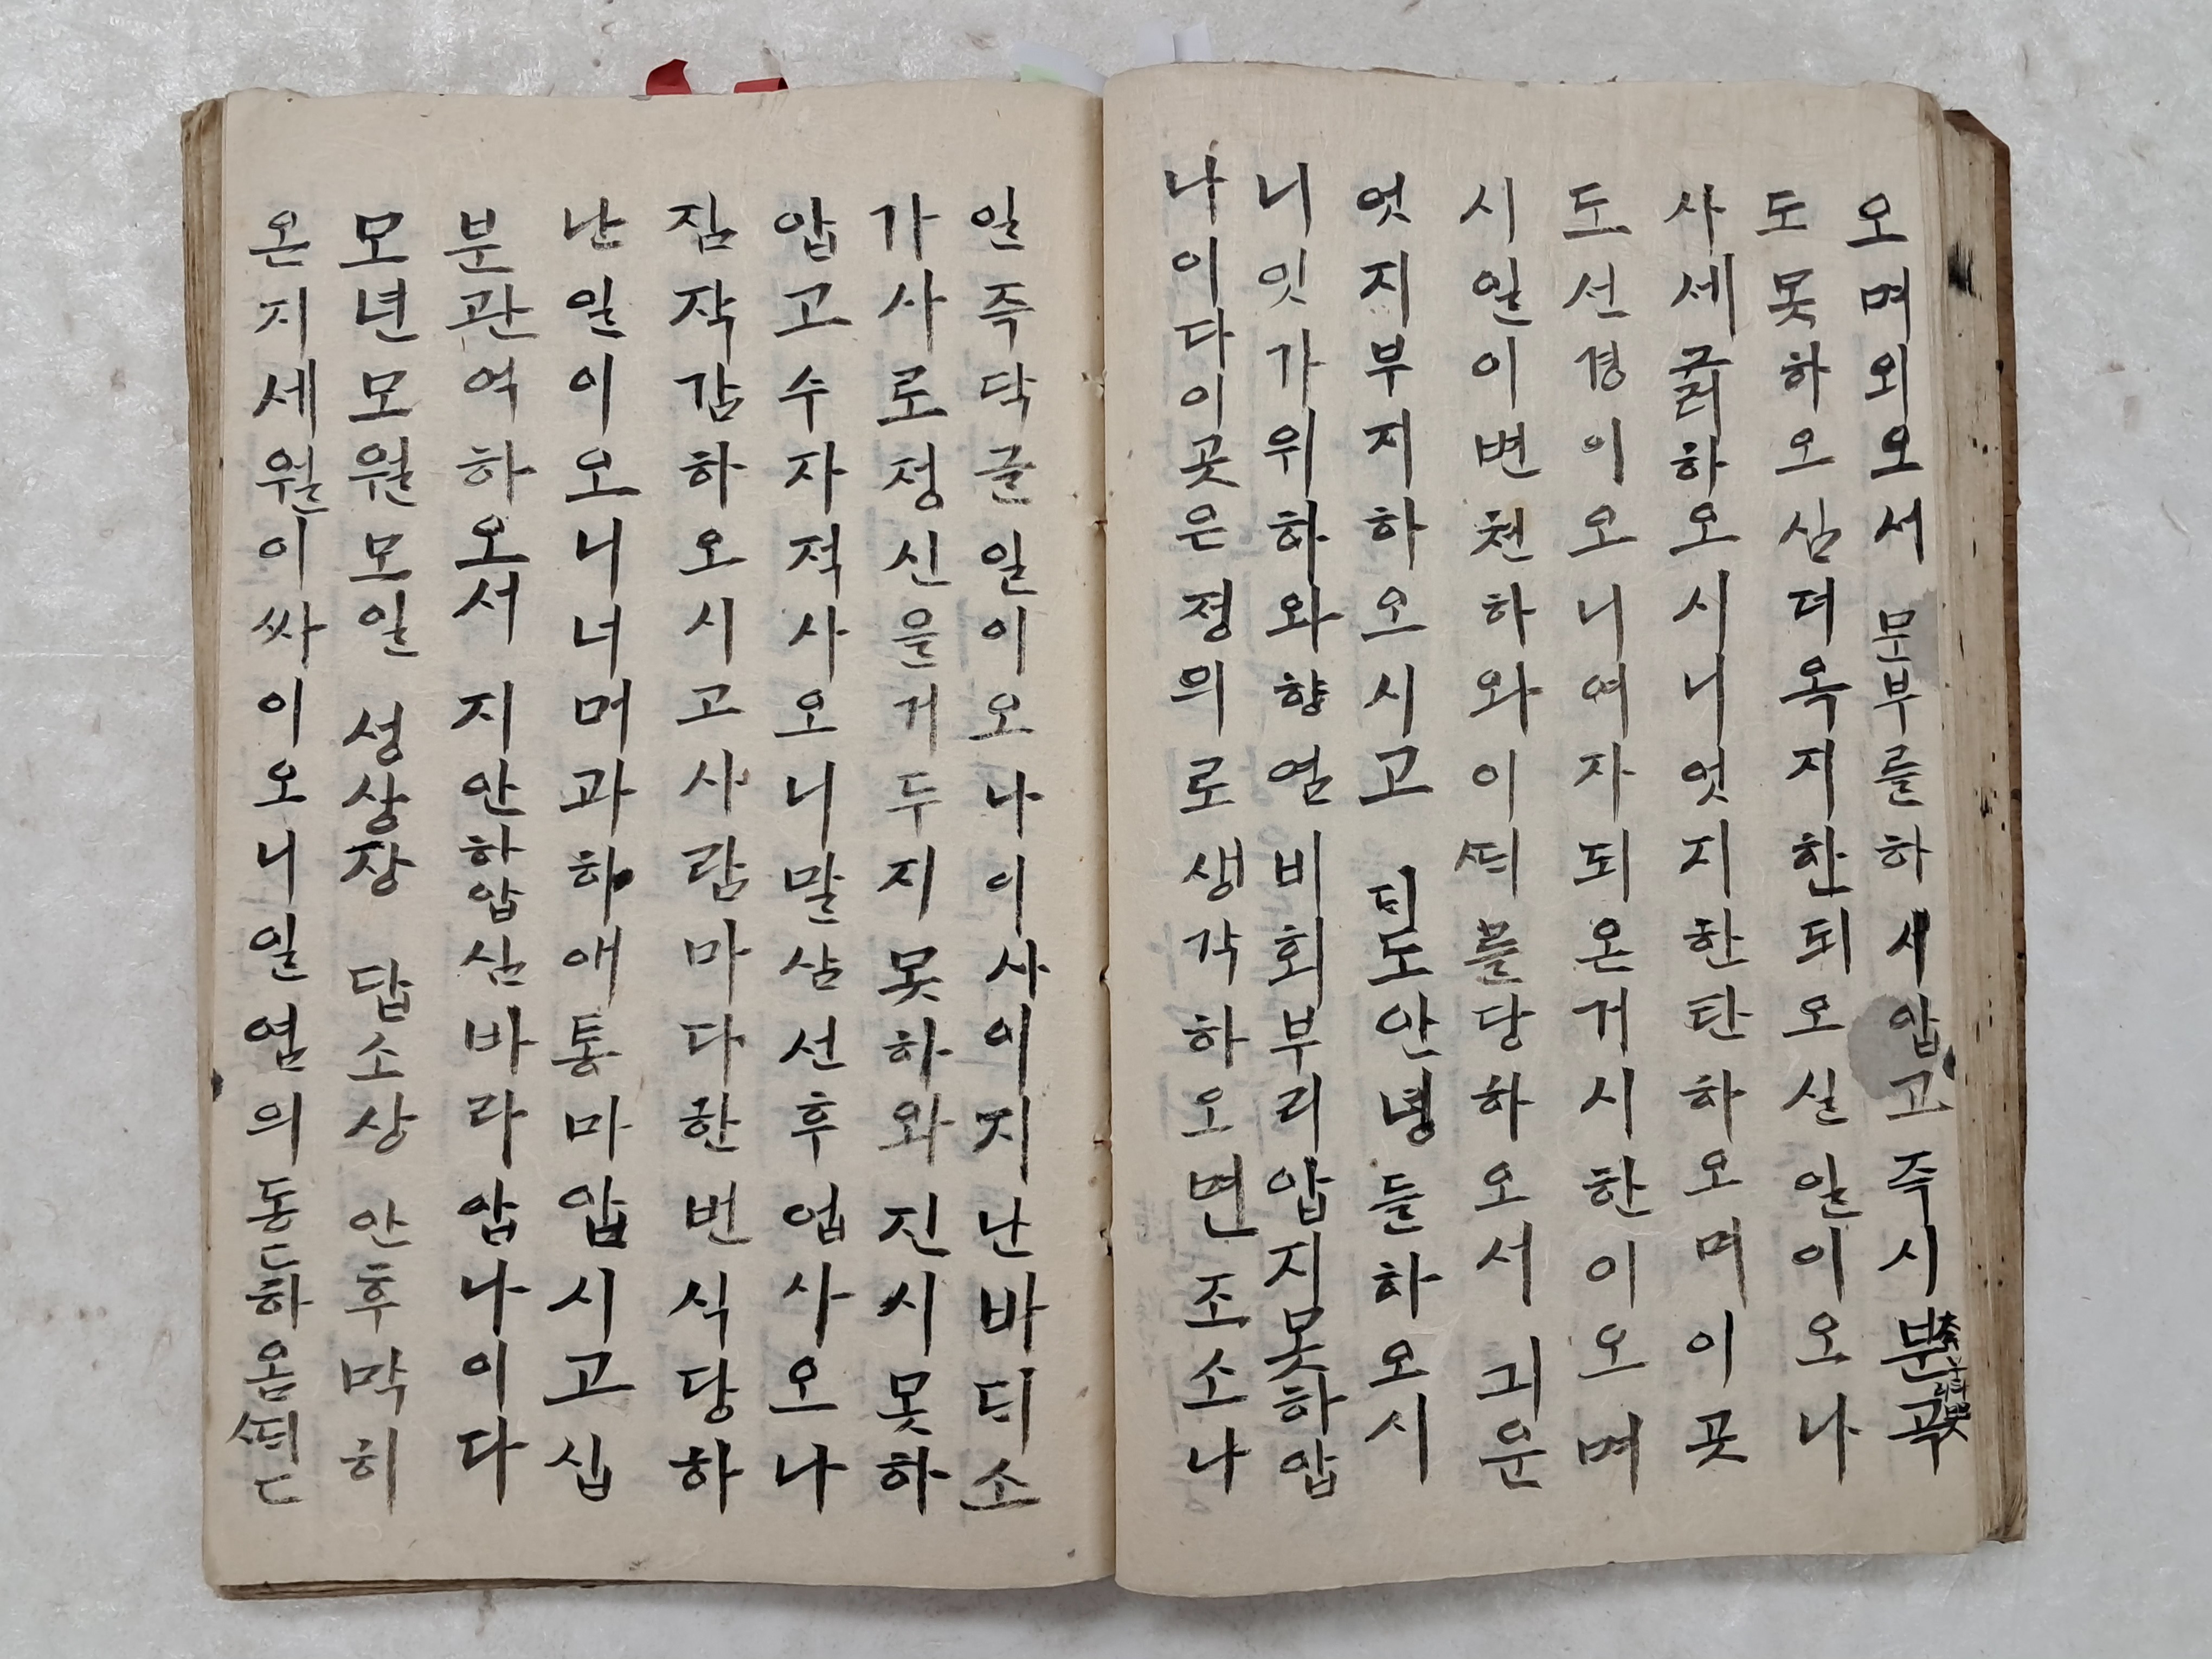 오며외오서 문부를하새압고즉시분곡
도못하오심더옥지한되오실일이오나
사세그러하오시니엇지한탄하오며이곳
도선경이오니여자되온거시한이오며
시일이변천하와이ᄯᅢ를당하오서긔운
엇지부지하오시고 ᄃᆡᆨ도안녕들하오시
니잇가위하와향염비회부리압지못하압
나이다이곳은졍의로생각하오면조소나
일즉닥글일이오나이사이지난바ᄃᆡ소
가사로정신을거두지못하와진시못하
압고수자적사오니말삼선후업사오나
짐작감하오시고사람마다한번식당하
난일이오니너머과하애통마압시고십
분관여하오서 지안하압심바라압나이다
모년모월모일 성상장 답소상 안후막히
온지세월이싸이오니일염의동〻하옴ᄯᅢ〻